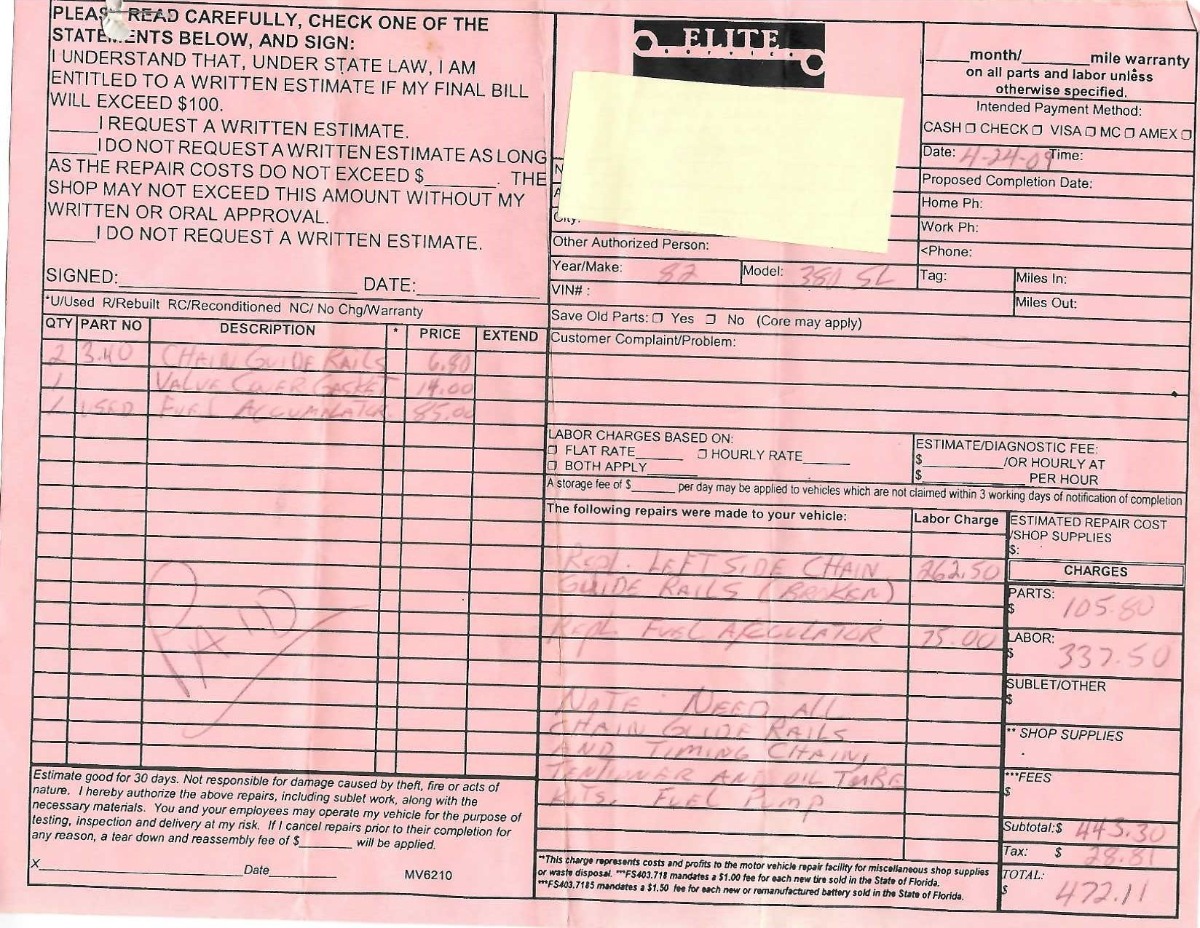 PLEASE READ CAREFULLY, CHECK ONE OF THE
STATEMENTS BELOW, AND SIGN:
I UNDERSTAND THAT, UNDER STATE LAW, I AM
ENTITLED TO A WRITTEN ESTIMATE IF MY FINAL BILL
WILL EXCEED $100.
_____I REQUEST A WRITTEN ESTIMATE.
_____I DO NOT REQUEST A WRITTEN ESTIMATE AS LONG
AS THE REPAIR COSTS DO NOT EXCEED $_______. THE
SHOP MAY NOT EXCEED THIS AMOUNT WITHOUT MY
WRITTEN OR ORAL APPROVAL.
_____I DO NOT REQUEST A WRITTEN ESTIMATE.
SIGNED:____________ DATE:____________
*U/Used R/Rebuilt RC/Reconditioned NC/ No Chg/Warranty
QTY PART NO DESCRIPTION * PRICE EXTEND
2 3.40 CHAIN GUIDE RAILS 6.80
1 VALVE COVER GASKET 14.00
1 USED FUEL ACCUMULATOR 85.00
PAID
Estimate good for 30 days. Not responsible for damage caused by theft, fire or acts of
nature. I hereby authorize the above repairs, including sublet work, along with the
necessary materials. You and your employees may operate my vehicle for the purpose of
testing, inspection and delivery at my risk. If I cancel repairs prior to their completion for
any reason, a tear down and reassembly fee of $_______ will be applied.
X____________ Date____________ MV6210
ELITE
SERVICE
City:
Other Authorized Person:
Year/Make: 82 Model: 380 SL
VIN# :
Save Old Parts: ☐ Yes ☐ No (Core may apply)
Customer Complaint/Problem:
____month/_______mile warranty
on all parts and labor unless
otherwise specified.
Intended Payment Method:
CASH ☐ CHECK ☐ VISA ☐ MC ☐ AMEX ☐
Date: 4-24-09 Time:
Proposed Completion Date:
Home Ph:
Work Ph:
<Phone:
Tag: Miles In:
Miles Out:
LABOR CHARGES BASED ON:
☐ FLAT RATE_______ ☐ HOURLY RATE_______
☐ BOTH APPLY_______
ESTIMATE/DIAGNOSTIC FEE:
$____________/OR HOURLY AT
$____________ PER HOUR
A storage fee of $_______ per day may be applied to vehicles which are not claimed within 3 working days of notification of completion
The following repairs were made to your vehicle: Labor Charge
Repl. LEFT SIDE CHAIN 262.50
GUIDE RAILS (BROKEN)
Repl. FUEL ACCULATOR 75.00
NOTE: NEED ALL
CHAIN GUIDE RAILS
AND TIMING CHAIN,
TENTIONER AND OIL TUBE
KITS. FUEL PUMP
**This charge represents costs and profits to the motor vehicle repair facility for miscellaneous shop supplies
or waste disposal. ***FS403.718 mandates a $1.00 fee for each new tire sold in the State of Florida.
***FS403.7185 mandates a $1.50 fee for each new or remanufactured battery sold in the State of Florida.
ESTIMATED REPAIR COST
/SHOP SUPPLIES
$:
CHARGES
PARTS:
$ 105.80
LABOR:
$ 337.50
SUBLET/OTHER
$
** SHOP SUPPLIES
***FEES
$
Subtotal:$ 443.30
Tax: $ 28.81
TOTAL:
$ 472.11